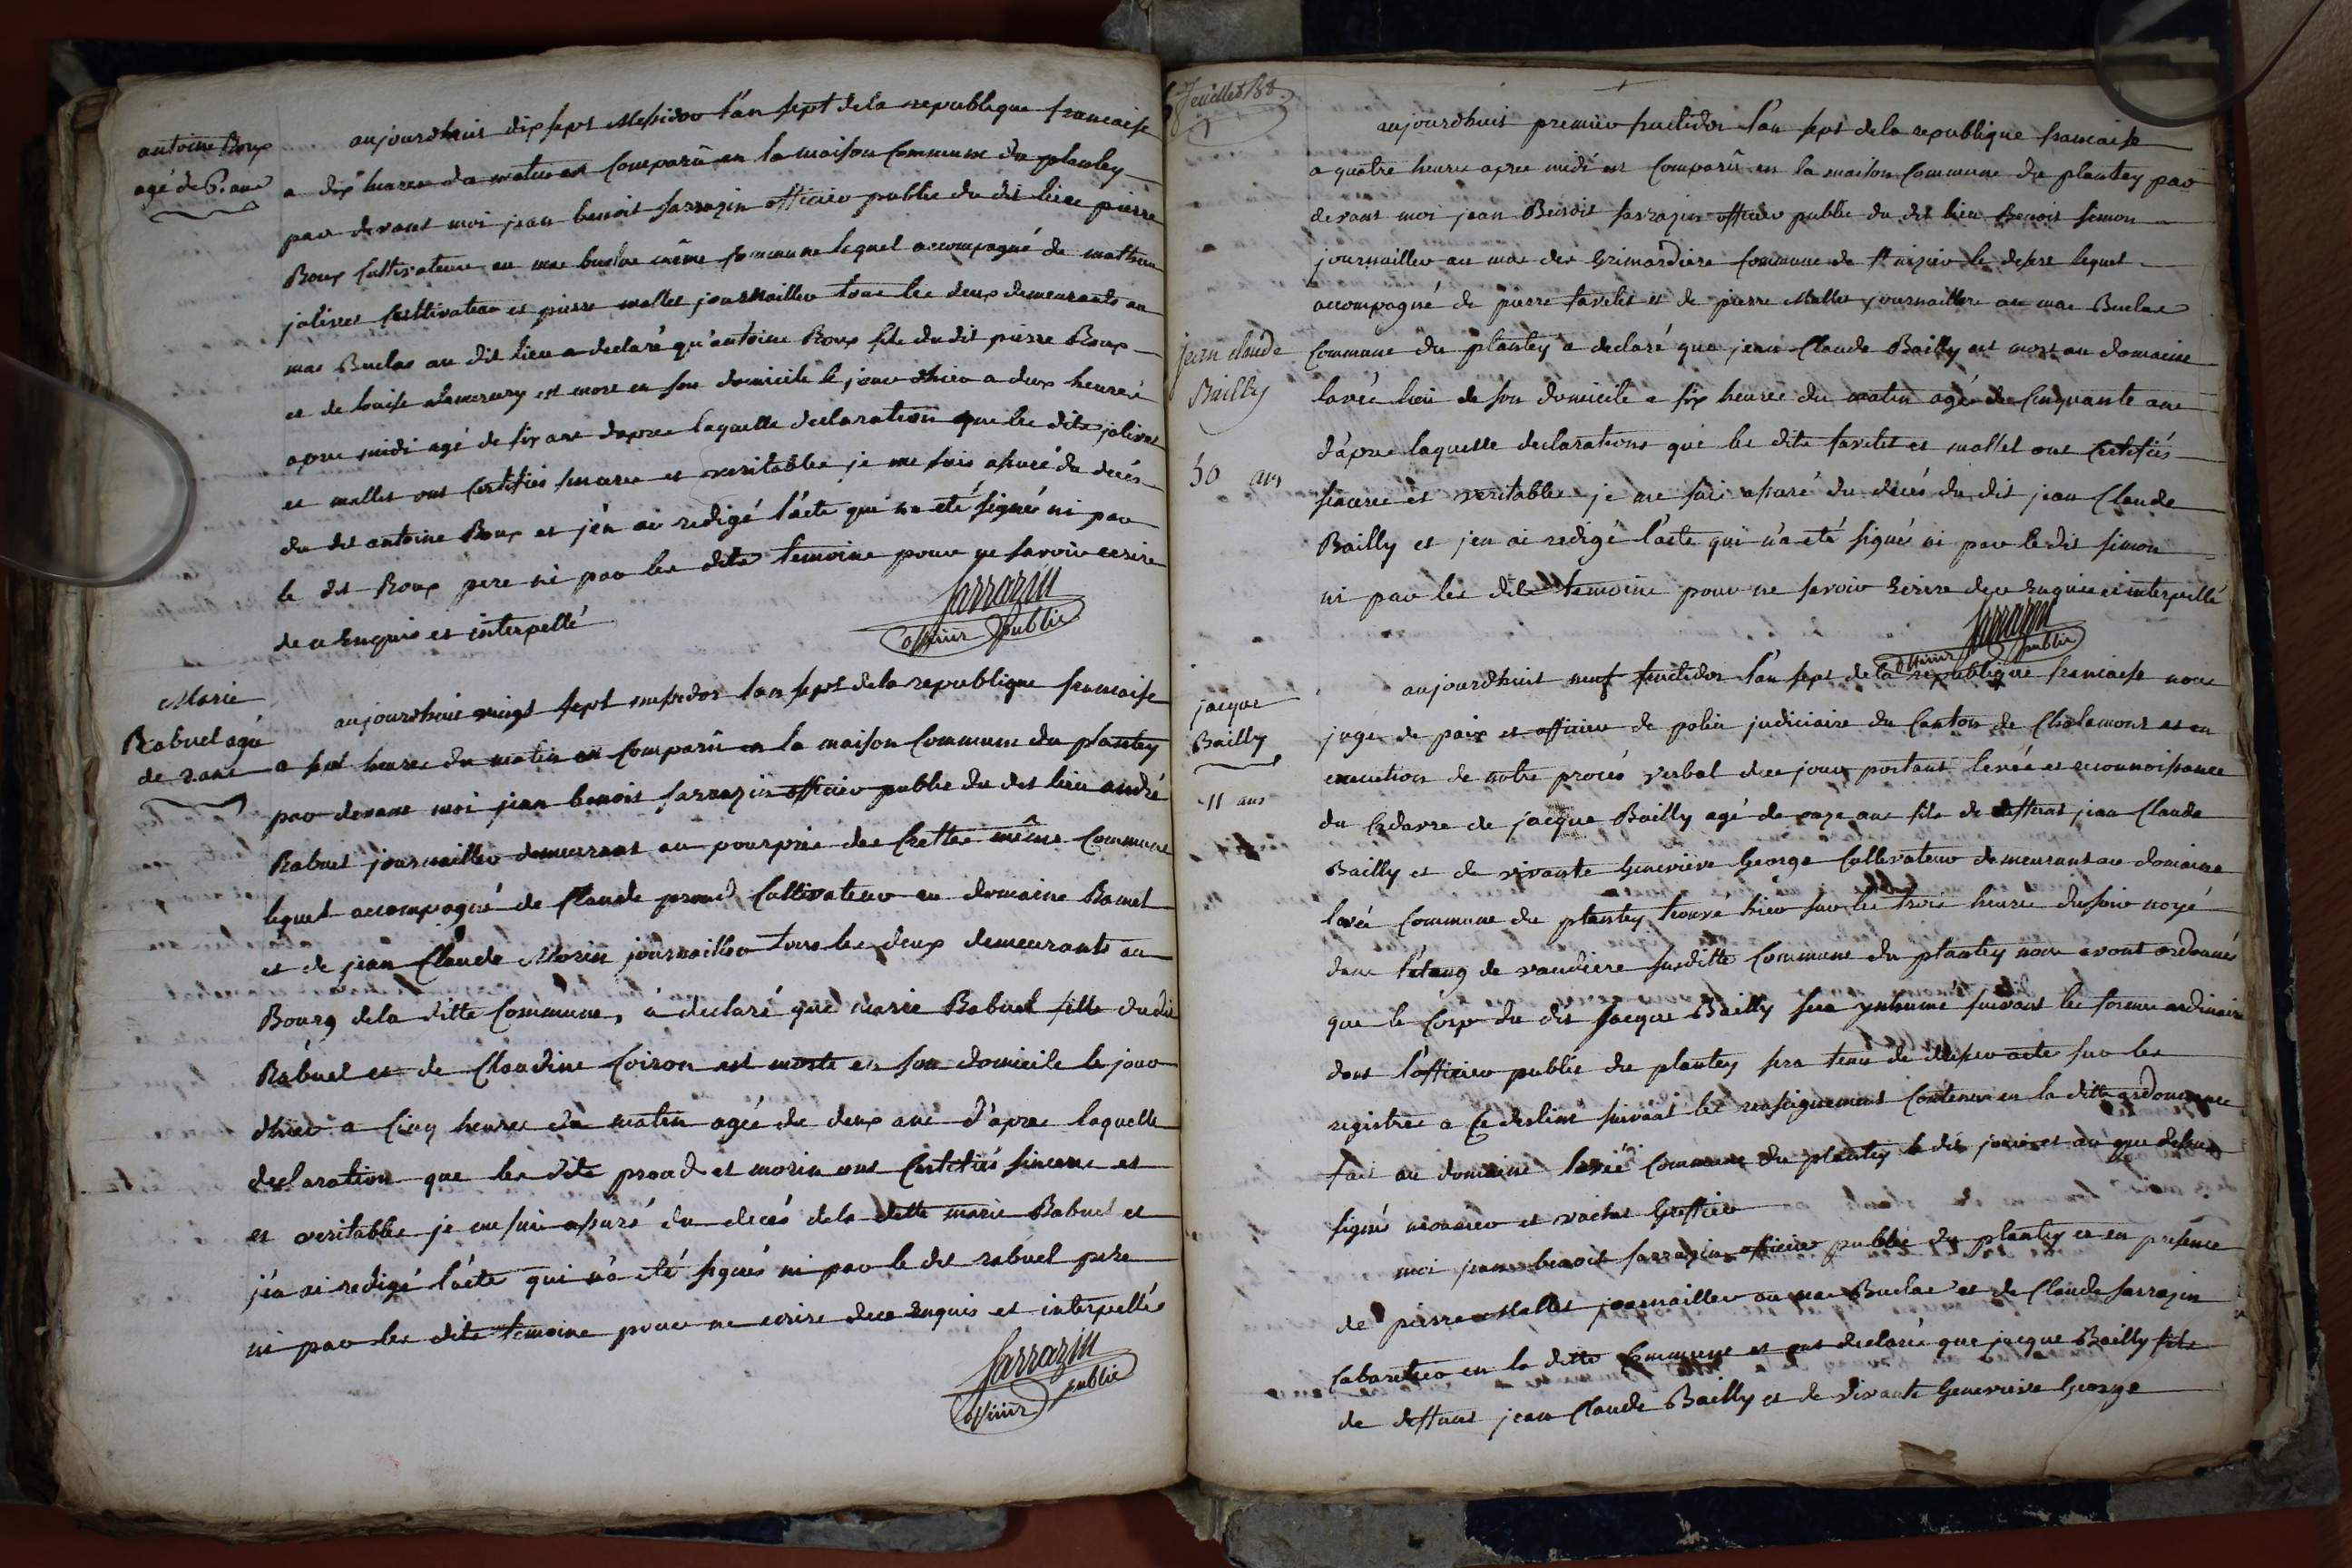 antoine Roux
agé de 6. ans
aujourdhuis dix sept Messidor l'an sept dela republique francaise
a dix heures du matin est Comparû en la maison Commune du plantey
par devant moi jean benoit sarrazin officier public du dit lieu pierre
Roux Cultivateur au mas buclas même Commune lequel accompagné de mathieu
jolivet Cultivateur et pierre mallet journaillier tous les deux demeurants au
mas Buclas au dit lieu a declaré qu'antoine Roux fils du dit pierre Roux
et de louise est mort en son domicile le jour dhier a deux heures
apres midi agé de six ans dapres laquelle declaration que les dits jolivet
et mallet ont Certifiés sincere et veritable je me suis assuré du decés
du dit antoine Roux et j'en ai redigé l'acte qui n'a eté signé ni par
le dit Roux pere ni par les dits temoins pour ne savoir ecrire
de ce Enquis et interpellé
Sarrazin
officier public
Marie
Rabuel agée
de 2 ans
aujourdhuis vingt sept messidor l'an sept dela republique francaise
a sept heures du matin est Comparû en la maison Commune du plantey
par devant moi jean benoit sarrazin officier public du dit lieu andré
Rabuel journaillier demeurant au pourprix des Crettes même Commune
lequel accompagné de Claude proud Cultivateur au domaine Bomet
et de jean Claude Morin journaillier tous les deux demeurants au
Bourg dela ditte Commune, à declaré que marie Rabuel fille du dit
Rabuel et de Claudine Coiron est morte en son domicile le jour
dhier a Cinq heures du matin agée de deux ans d'apres laquelle
declaration que les dits proud et morin ont Certifiés sincere et
et veritable je me suis assuré du decés dela ditte marie Rabuel et
j'en ai redigé l'acte qui n'a eté signés ni par le dit rabuel pere
ni par les dits temoins pour ne ecrire dece enquis et interpellés
Sarrazin
officier public
feuillet 88.
aujourdhuis premier fructidor l'an sept dela republique francaise
a quatre heures apres midi est Comparû en la maison Commune du plantey par
devant moi jean Benoit sarrazin officier public du dit lieu Benoit simon
journaillier au mas des Grimardiere Commune de st nizier le desert lequel
accompagné de pierre tavelet et de pierre Mallet journailliers au mas Buclas
jean claude
Bailly
50 ans
Commune du plantey a declaré que jean Claude Bailly est mort au domaine
lavée lieu de son domicile a six heures du matin agé de Cinquante ans
d'apres laquelle declarations que les dits tavelet et mallet ont Certifiés
sincere et veritable je me suis assuré du decés du dit jean Claude
Bailly et jen ai redigé l'acte qui n'a eté signé ni par le dit simon
ni par les dits temoins pour ne savoir Ecrire de ce Enquis et interpellé
Sarrazin
officier public
jacque
Bailly
11 ans
aujourdhuis neuf fructidor l'an sept dela republique francaise nous
juge de paix et officier de police judiciaire du Canton de Chalamont et en
execution de notre procés verbal dece jour portant levée et reconnoissance
du Cadavre de jacque Bailly agé de onze ans fils de deffunt jean Claude
Bailly et de vivante Genevieve George Cultivateur demeurant au domaine
lavée Commune du plantey trouvé hier sur les trois heures du soir noyé
dans l'etang de vaudiere susditte Commune du plantey nous avont ordonnés
que le Corps du dit Jacque Bailly sera ynhumé suivant les formes ordinaire
dont l'officier public du plantey sera tenu de dresser acte sur les
registres a Ce destiné suivant les renseignement Contenu en la ditte ordonnance
fait au domaine lavée Commune du plantey le dit jour et an que dessus
signé et vachat Greffier
moi jean benoit sarrazin officier public du plantey et en presence
de pierre Mallet journaillier au mas Buclas et de Claude sarrazin
Cabaretier en la ditte Commune et ont declaré que jacque Bailly fils
de deffunt jean Claude Bailly et de vivante Genevieve George